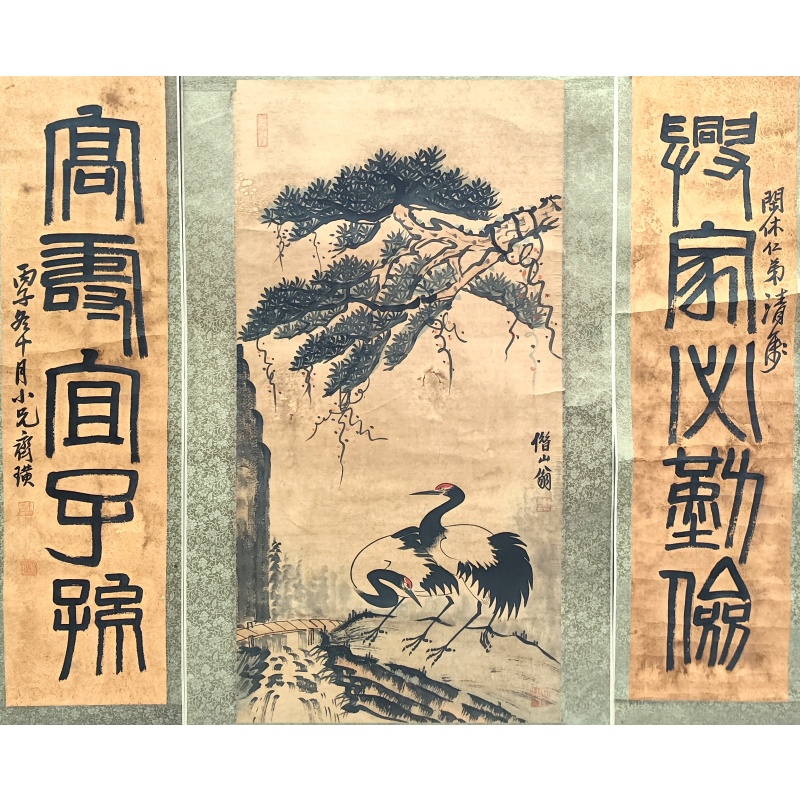 興家必勤儉
閏休仁弟清屬
借山翁
高壽宜子孫
丙子冬十月小兄齊璜